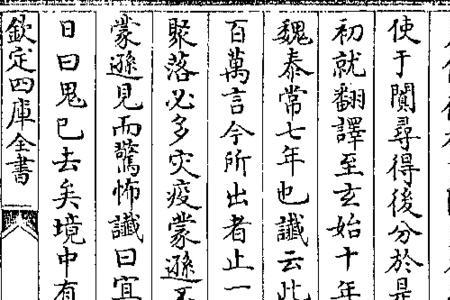 使于闐尋得後分於是
初就翻譯至玄始十年
魏泰常七年也讖云此
百萬言今所出者止一
聚落必多灾疫蒙遜不
蒙遜見而驚怖讖曰宜
日曰鬼已去矣境中有
欽定四庫全書